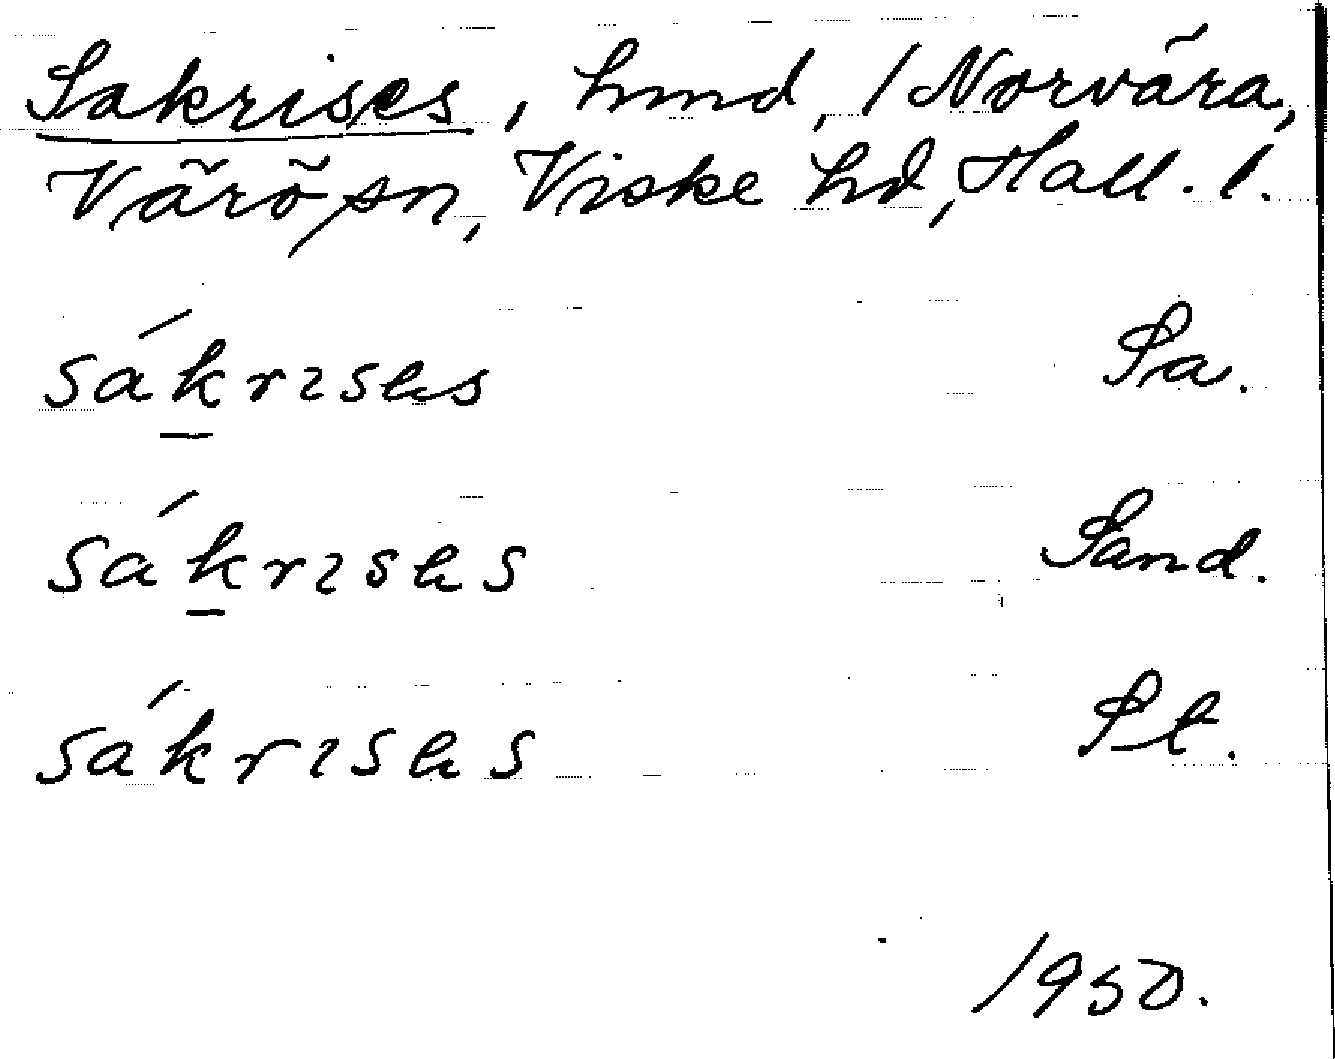 Sakrises, hmd, 1 Norvära,
Värö sn, Viske hd, Hall. l.
sákrɩses Sa.
sákrɩses Sand.
sákrɩses St.
1950.